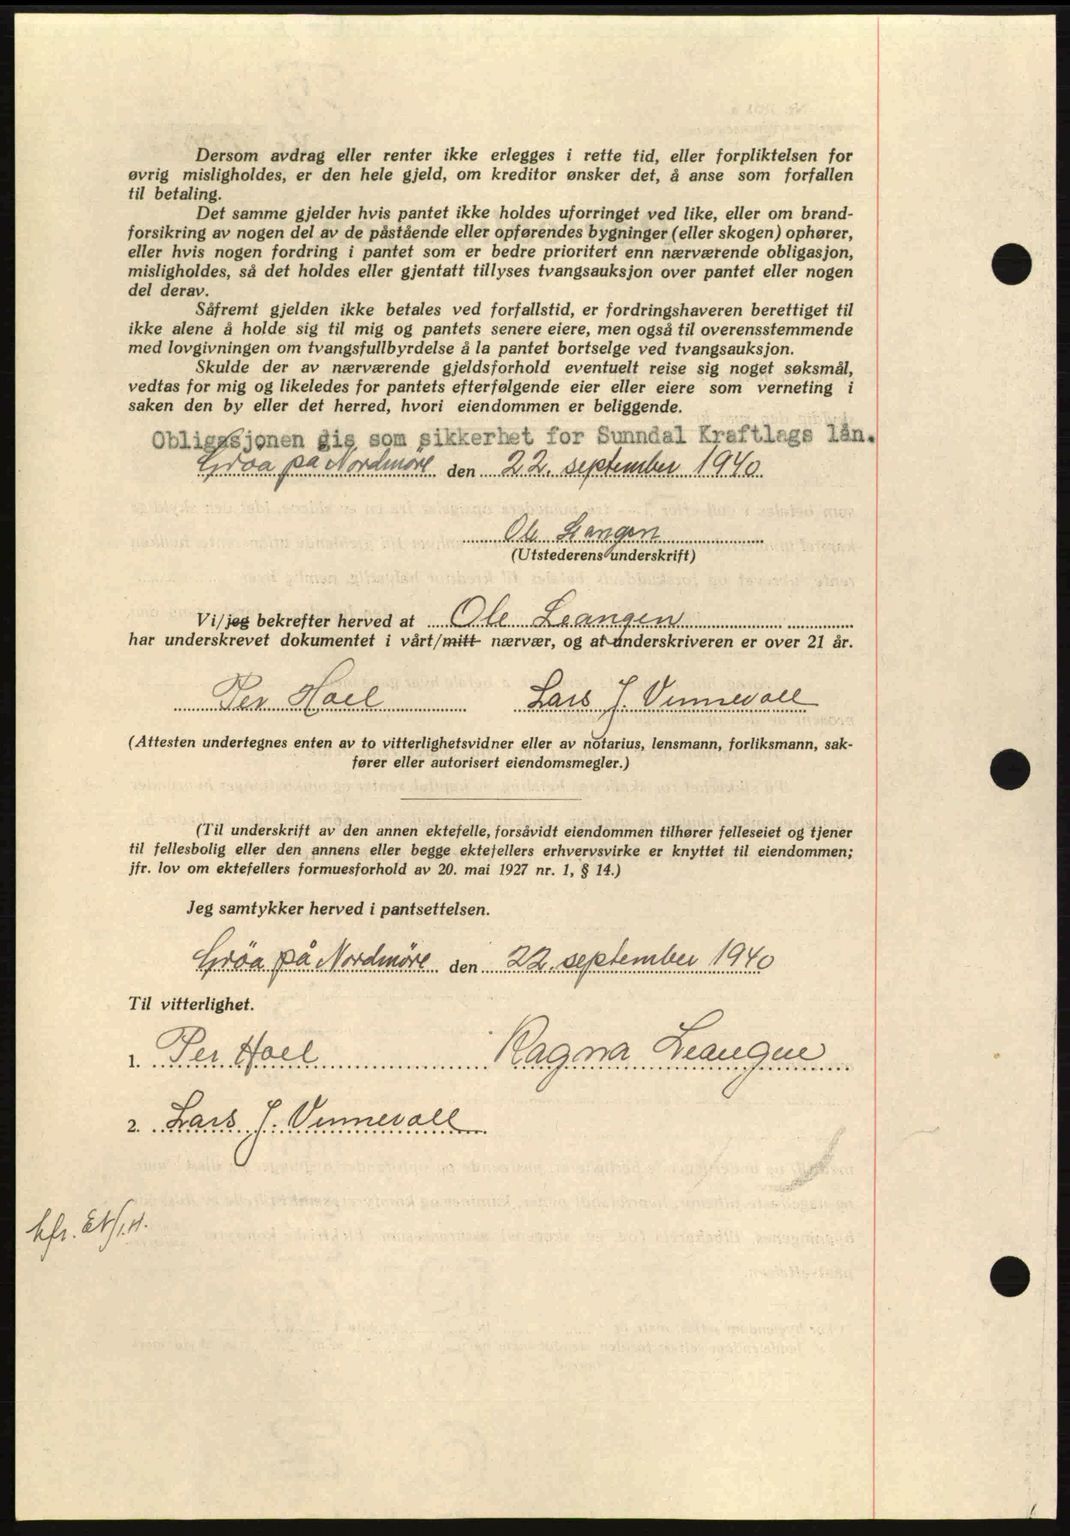 Dersom avdrag eller renter ikke erlegges i rette tid, eller forpliktelsen for
øvrig misligholdes, er den hele gjeld, om kreditor ønsker det, å anse som forfallen
til betaling.
Det samme gjelder hvis pantet ikke holdes uforringet ved like, eller om brand-
forsikring av nogen del av de påstående eller opførendes bygninger (eller skogen) ophører,
eller hvis nogen fordring i pantet som er bedre prioritert enn nærværende obligasjon,
misligholdes, så det holdes eller gjentatt tillyses tvangsauksjon over pantet eller nogen
del derav.
Såfremt gjelden ikke betales ved forfallstid, er fordringshaveren berettiget til
ikke alene å holde sig til mig og pantets senere eiere, men også til overensstemmende
med lovgivningen om tvangsfullbyrdelse å la pantet bortselge ved tvangsauksjon.
Skulde der av nærværende gjeldsforhold eventuelt reise sig noget søksmål,
vedtas for mig og likeledes for pantets efterfølgende eier eller eiere som verneting i
saken den by eller det herred, hvori eiendommen er beliggende.
Obligasjonen gis som sikkerhet for Sunndal Kraftlags lån.
Gröa på Nordmøre den 22. september 1940
Ole Leangen
(Utstederens underskrift)
Vi/jeg bekrefter herved at Ole Leangen
har underskrevet dokumentet i vårt/mitt nærvær, og at underskriveren er over 21 år.
Per Hoel Lars J. Vinnevoll
(Attesten undertegnes enten av to vitterlighetsvidner eller av notarius, lensmann, forliksmann, sak-
fører eller autorisert eiendomsmegler.)
(Til underskrift av den annen ektefelle, forsåvidt eiendommen tilhører felleseiet og tjener
til fellesbolig eller den annens eller begge ektefellers erhvervsvirke er knyttet til eiendommen;
jfr. lov om ektefellers formuesforhold av 20. mai 1927 nr. 1, § 14.)
Jeg samtykker herved i pantsettelsen.
Gröa på Nordmøre den 22. september 1940
Til vitterlighet.
1. Per Hoel Ragna Leangen
2. Lars J. Vinnevoll